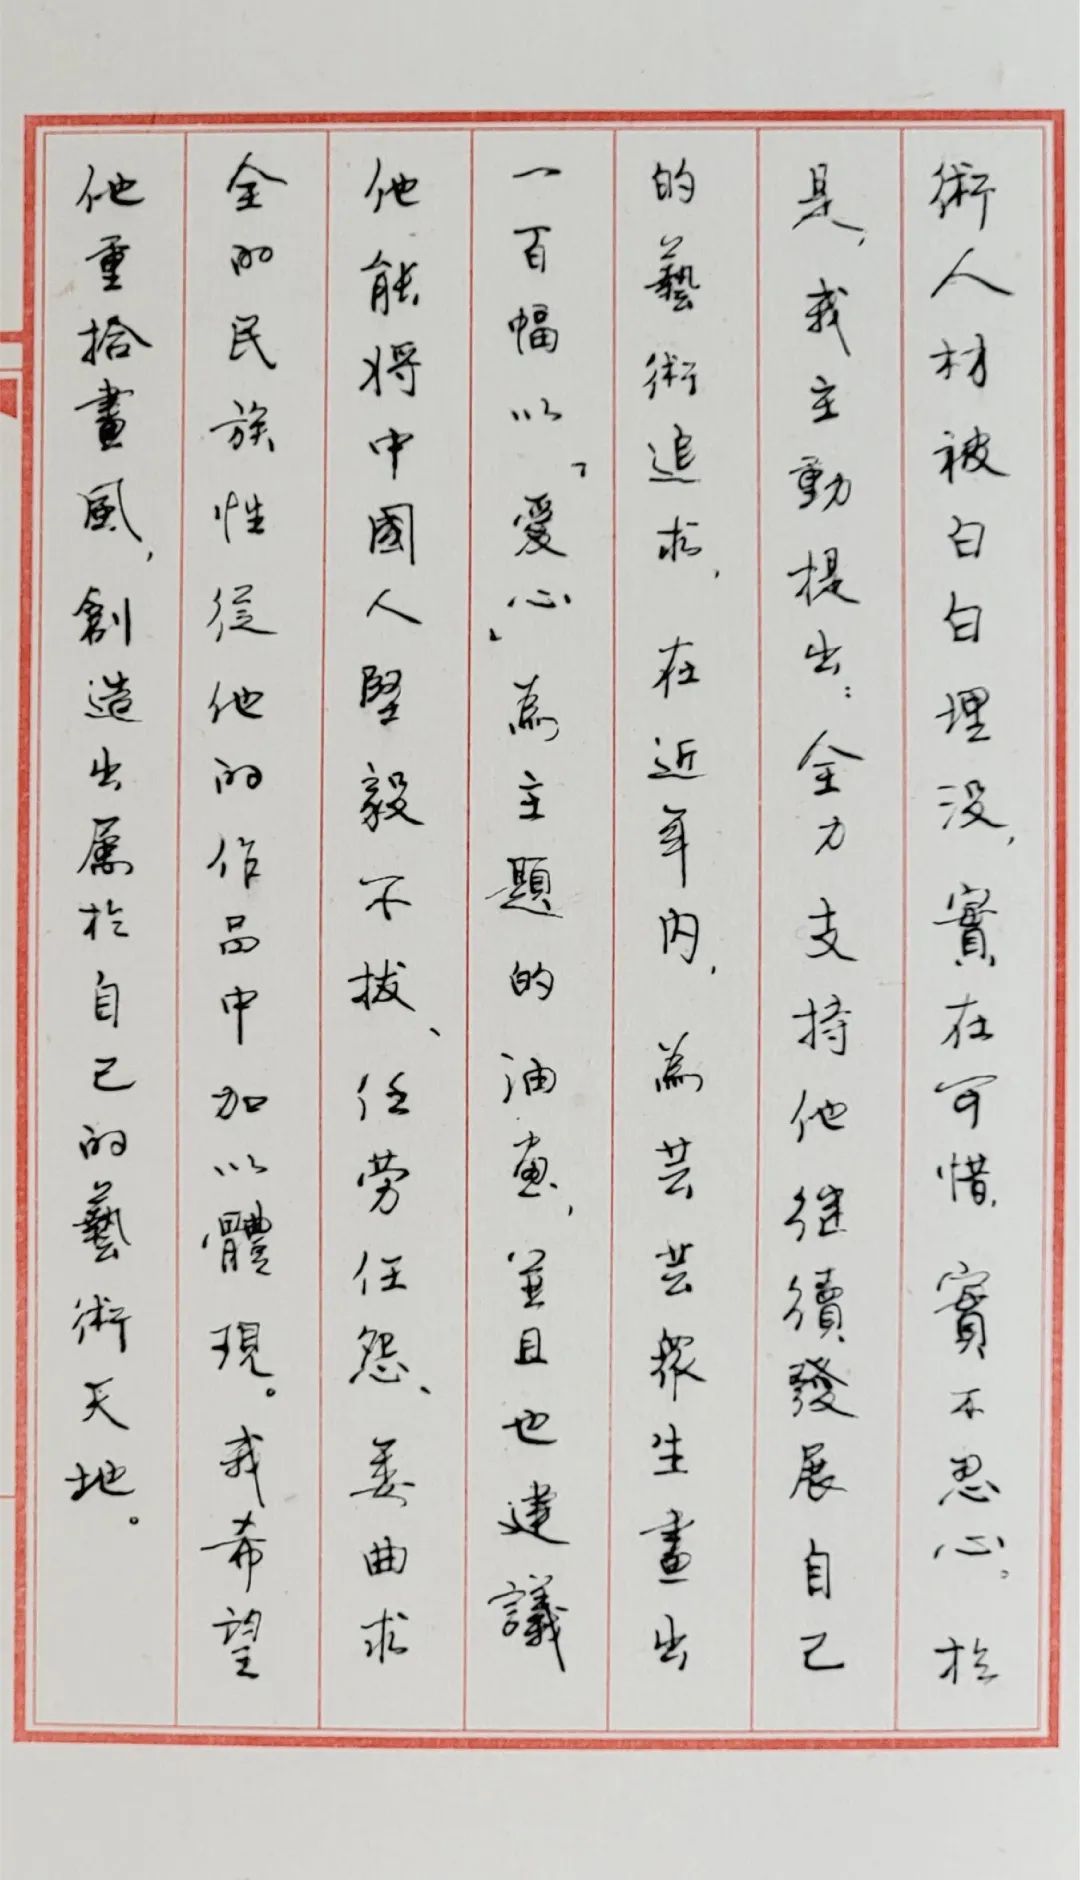 術人材被白白埋没，實在可惜，實不忍心。於
是，我主動提出：全力支持他继續發展自己
的藝術追求，在近年内，為芸芸衆生畫出
一百幅以「愛心」為主題的油畫，並且也建議
他能将中國人堅毅不拔、任劳任怨、委曲求
全的民族性從他的作品中加以體現。我希望
他重拾畫風，創造出屬於自己的藝術天地。